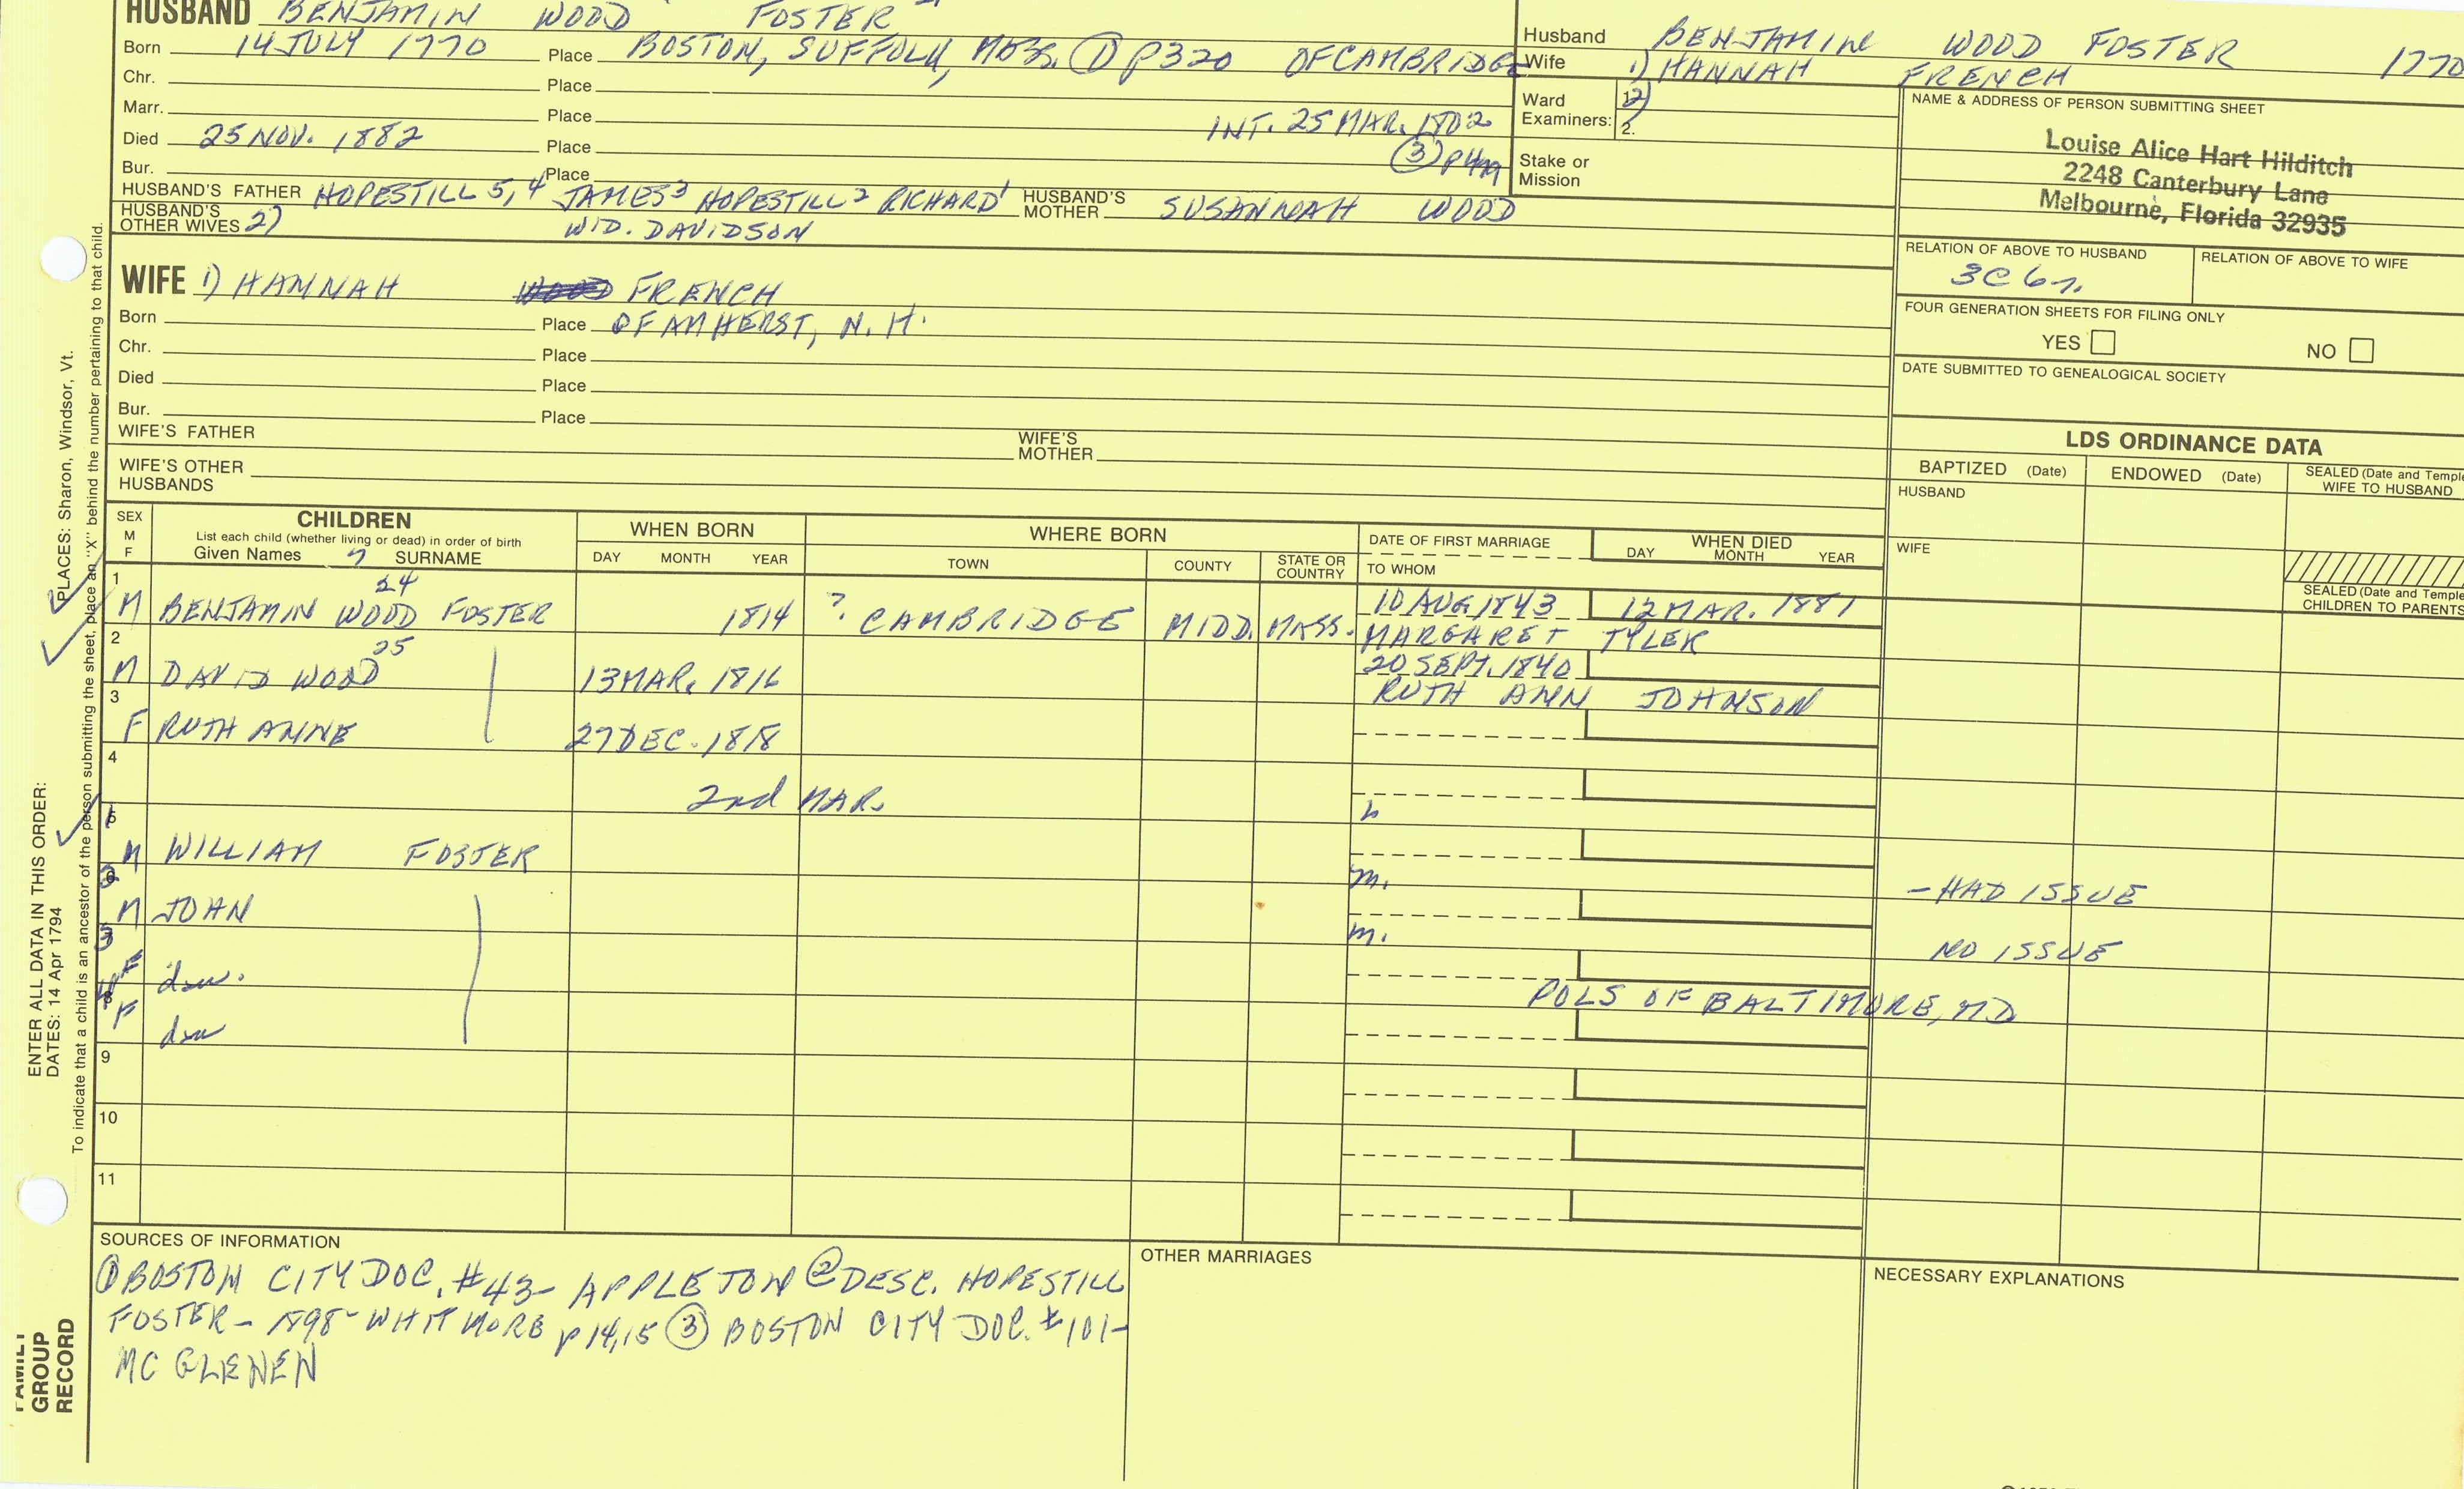 HUSBAND BENJAMIN WOOD FOSTER
Born 14 JULY 1770 Place BOSTON, SUFFOLK, MASS. ① P320 OF CAMBRIDGE
Chr. Place
Marr. Place INT. 25 MAR. 1802
Died 25 NOV. 1882 Place ③
Bur. Place
HUSBAND'S FATHER HOPESTILL 5,4 JAMES3 HOPESTILL2 RICHARD1 HUSBAND'S MOTHER SUSANNAH WOOD
HUSBAND'S OTHER WIVES 2) WID. DAVIDSON
Husband BENJAMIN WOOD FOSTER 1770
Wife 1) HANNAH FRENCH
Ward Examiners: 1.
2.
Stake or Mission
NAME & ADDRESS OF PERSON SUBMITTING SHEET
Louise Alice Hart Hilditch
2248 Canterbury Lane
Melbourne, Florida 32935
RELATION OF ABOVE TO HUSBAND RELATION OF ABOVE TO WIFE
3C 6r.
FOUR GENERATION SHEETS FOR FILING ONLY
YES NO
DATE SUBMITTED TO GENEALOGICAL SOCIETY
WIFE 1) HANNAH FRENCH
Born Place OF AMHERST, N.H.
Chr. Place
Died Place
Bur. Place
WIFE'S FATHER WIFE'S MOTHER
WIFE'S OTHER HUSBANDS
LDS ORDINANCE DATA
BAPTIZED (Date) ENDOWED (Date) SEALED (Date and Temple
WIFE TO HUSBAND
HUSBAND
WIFE
SEALED (Date and Temple
CHILDREN TO PARENTS
SEX
M
F
CHILDREN
List each child (whether living or dead) in order of birth
Given Names SURNAME
WHEN BORN
DAY MONTH YEAR
WHERE BORN
TOWN COUNTY STATE OR COUNTRY
DATE OF FIRST MARRIAGE
TO WHOM
WHEN DIED
DAY MONTH YEAR
1 24 10 AUG 1843 12 MAR. 1881
M BENJAMIN WOOD FOSTER 1814 ? CAMBRIDGE MIDD. MASS. MARGARET TYLER
2 25 20 SEPT. 1840
M DAVID WOOD 13 MAR. 1816 RUTH ANN JOHNSON
3
F RUTH ANNE 27 DEC. 1818
4
2nd MAR.
1
M WILLIAM FOSTER
2 m. - HAD ISSUE
M JOHN
3 m. NO ISSUE
F dau.
4 POLS OF BALTIMORE, MD
F dau
9
10
11
SOURCES OF INFORMATION
① BOSTON CITY DOC. #43- APPLETON ② DESC. HOPESTILL
FOSTER - 1898 - WHITMORE p 14,15 ③ BOSTON CITY DOC. #101-
MC GLENEN
OTHER MARRIAGES
NECESSARY EXPLANATIONS
ENTER ALL DATA IN THIS ORDER:
DATES: 14 Apr 1794 PLACES: Sharon, Windsor, Vt.
To indicate that a child is an ancestor of the person submitting the sheet, place an "X" behind the number pertaining to that child.
FAMILY
GROUP
RECORD